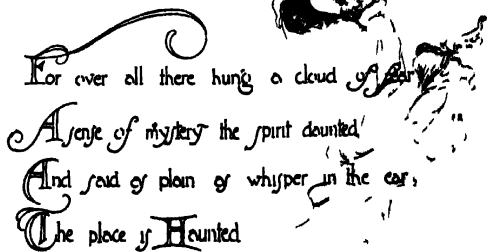 For over all there hung a cloud of fear
A sense of mystery the spirit daunted
And said as plain as whisper in the ear,
The place is Haunted